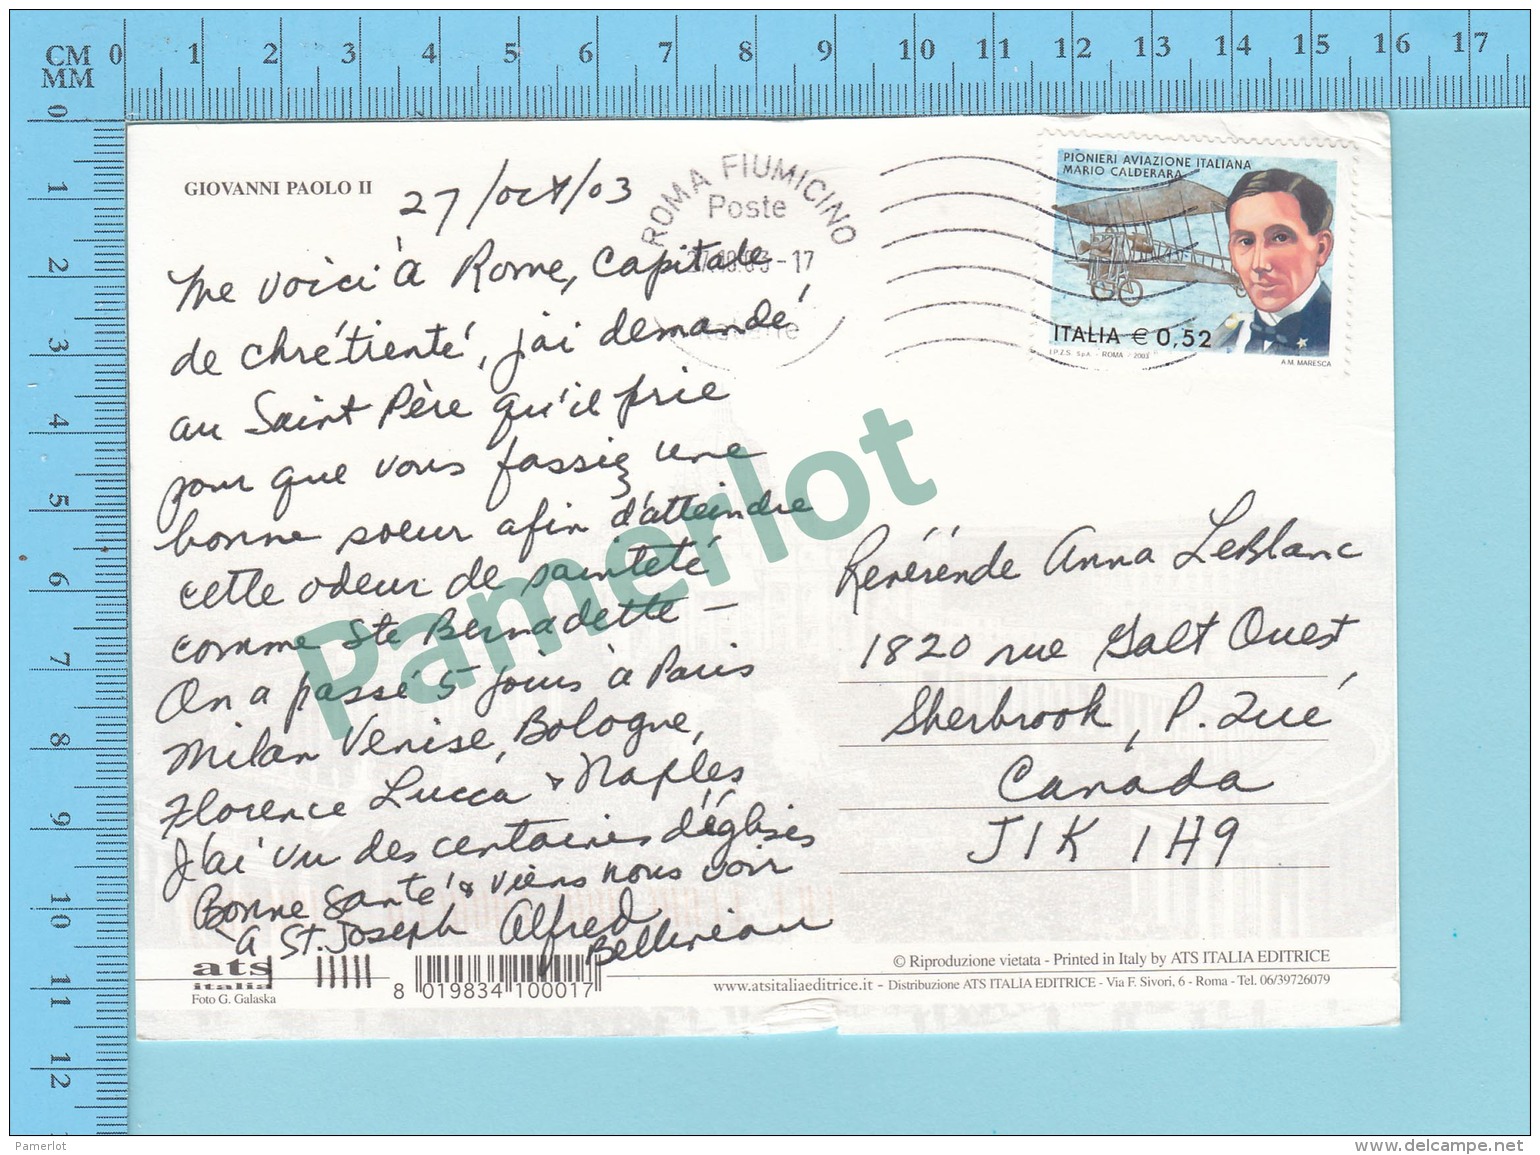 CM 0 1 2 3 4 5 6 7 8 9 10 11 12 13 14 15 16 17
MM
0 1 2 3 4 5 6 7 8 9 10 11 12
GIOVANNI PAOLO II
27/oct/03
ROMA FIUMICINO
Poste
-17
PIONIERI AVIAZIONE ITALIANA
MARIO CALDERARA
ITALIA € 0,52
I.P.Z.S. S.p.A. - ROMA - 2003
A.M. MARESCA
Me voici à Rome, Capitale
de chrétienté, j'ai demandé
au Saint Père qu'il prie
pour que vous fassiez une
bonne soeur afin d'atteindre
cette odeur de sainteté
comme Ste Bernadette —
On a passé 5 jours à Paris
Milan Venise, Bologne,
Florence Lucca & Naples
J'ai vu des centaines d'églises
Bonne Santé & viens nous voir
à St. Joseph Alfred
Révérende Anna LeBlanc
1820 rue Galt Ouest
Sherbrook, P. Qué
Canada
J1K 1H9
Pamerlot
ats
italia
Foto G. Galaska
8 019834 100017
© Riproduzione vietata - Printed in Italy by ATS ITALIA EDITRICE
www.atsitaliaeditrice.it - Distribuzione ATS ITALIA EDITRICE - Via F. Sivori, 6 - Roma - Tel. 06/39726079
Pamerlot
www.delcampe.net